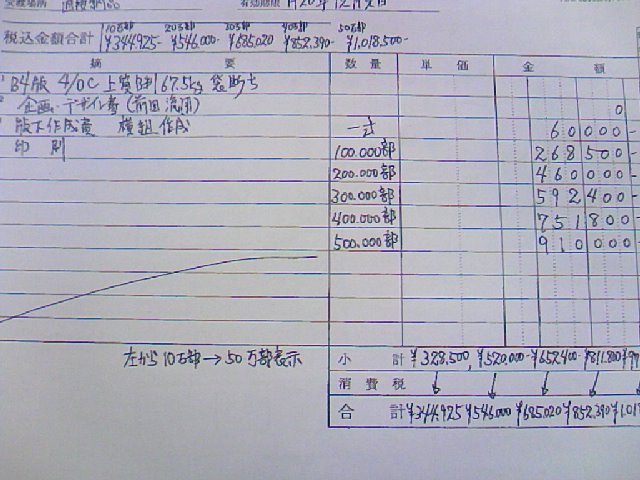 受渡場所 有効期限
10万部 20万部 30万部 40万部 50万部
税込金額合計 ¥344,925- ¥546,000- ¥685,020 ¥852,390- ¥1,018,500-
摘 要 数 量 単 価 金 額
B4版 4/0C 上質 67.5kg 袋断ち
企画・デザイン費(前回流用) 0
版下作成費 横組作成 一式 60000-
印刷 100.000部 268500-
200.000部 460000-
300.000部 592400-
400.000部 751800-
500.000部 910000-
左から10万部→50万部表示 小 計 ¥328,500, ¥520,000- ¥652,400- ¥811,800
消 費 税
合 計 ¥344,925 ¥546,000 ¥685,020 ¥852,390